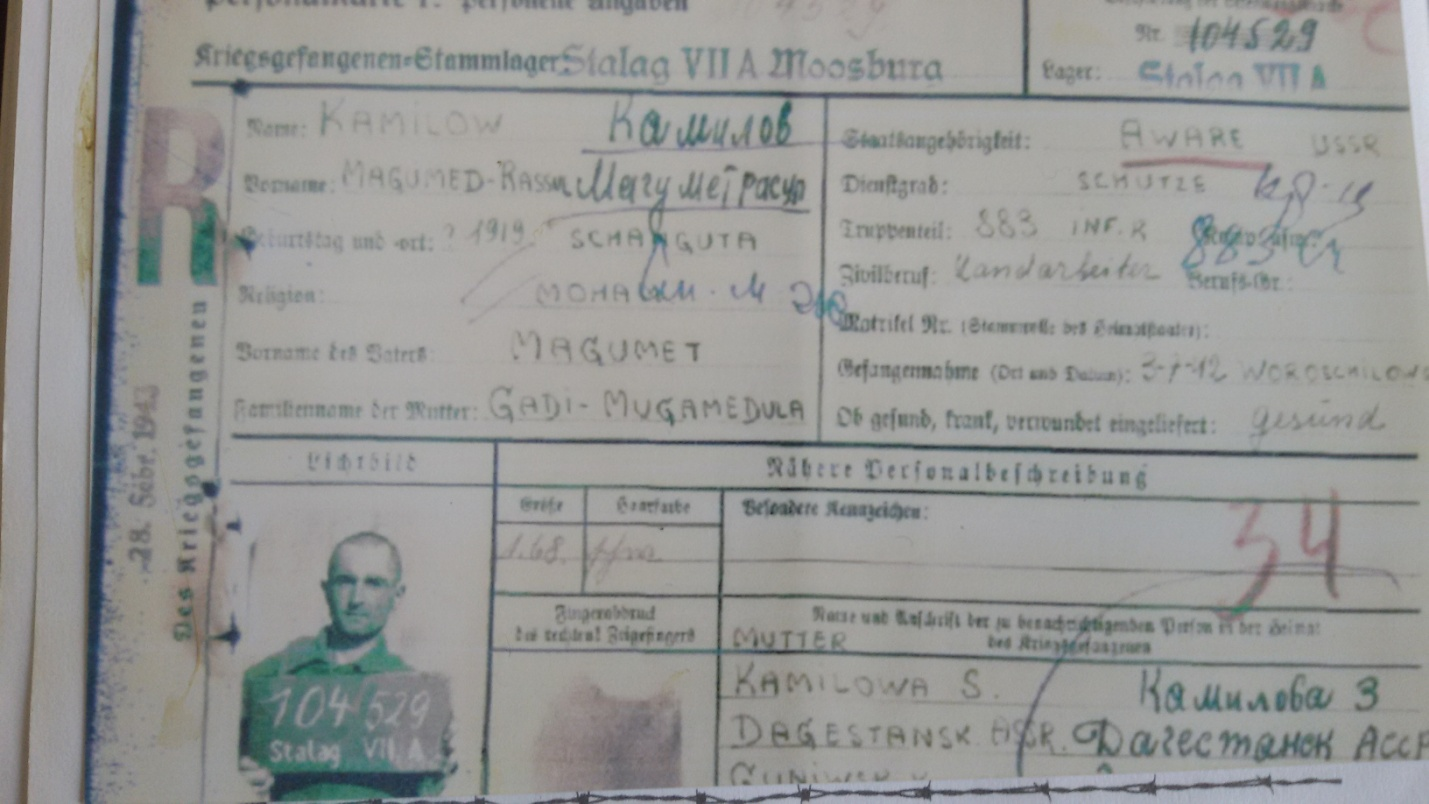 Personalkarte I: Personelle Angaben
Kriegsgefangenen-Stammlager: Stalag VII A Moosburg
Nr. 104529
Lager: Stalag VII A
Des Kriegsgefangenen
28. Sebr. 1943
R
Name: KAMILOW Камилов
Vorname: MAGUMED-RASSUL
Geburtstag und -ort: ? 1919. SCHANGUTA
Religion:
Vorname des Vaters: MAGUMET
Familienname der Mutter: GADI-MUGAMEDULA
Staatsangehörigkeit: AWARE USSR
Dienstgrad: SCHUTZE
Truppenteil: 883 INF.R
Zivilberuf: Landarbeiter Berufs-Gr.:
Matrikel Nr. (Stammrolle des Heimatstaates):
Gefangennahme (Ort und Datum):
Ob gesund, krank, verwundet eingeliefert: gesund
Lichtbild
Nähere Personalbeschreibung
Größe Haarfarbe Besondere Kennzeichen:
1.68.
34
Fingerabdruck
des rechten! Zeigefingers
Name und Anschrift der zu benachrichtigenden Person in der Heimat
des Kriegsgefangenen
MUTTER
KAMILOWA S. Камилова З
DAGESTANSK ASSR. Дагестанск АССР
104529
Stalag VII A